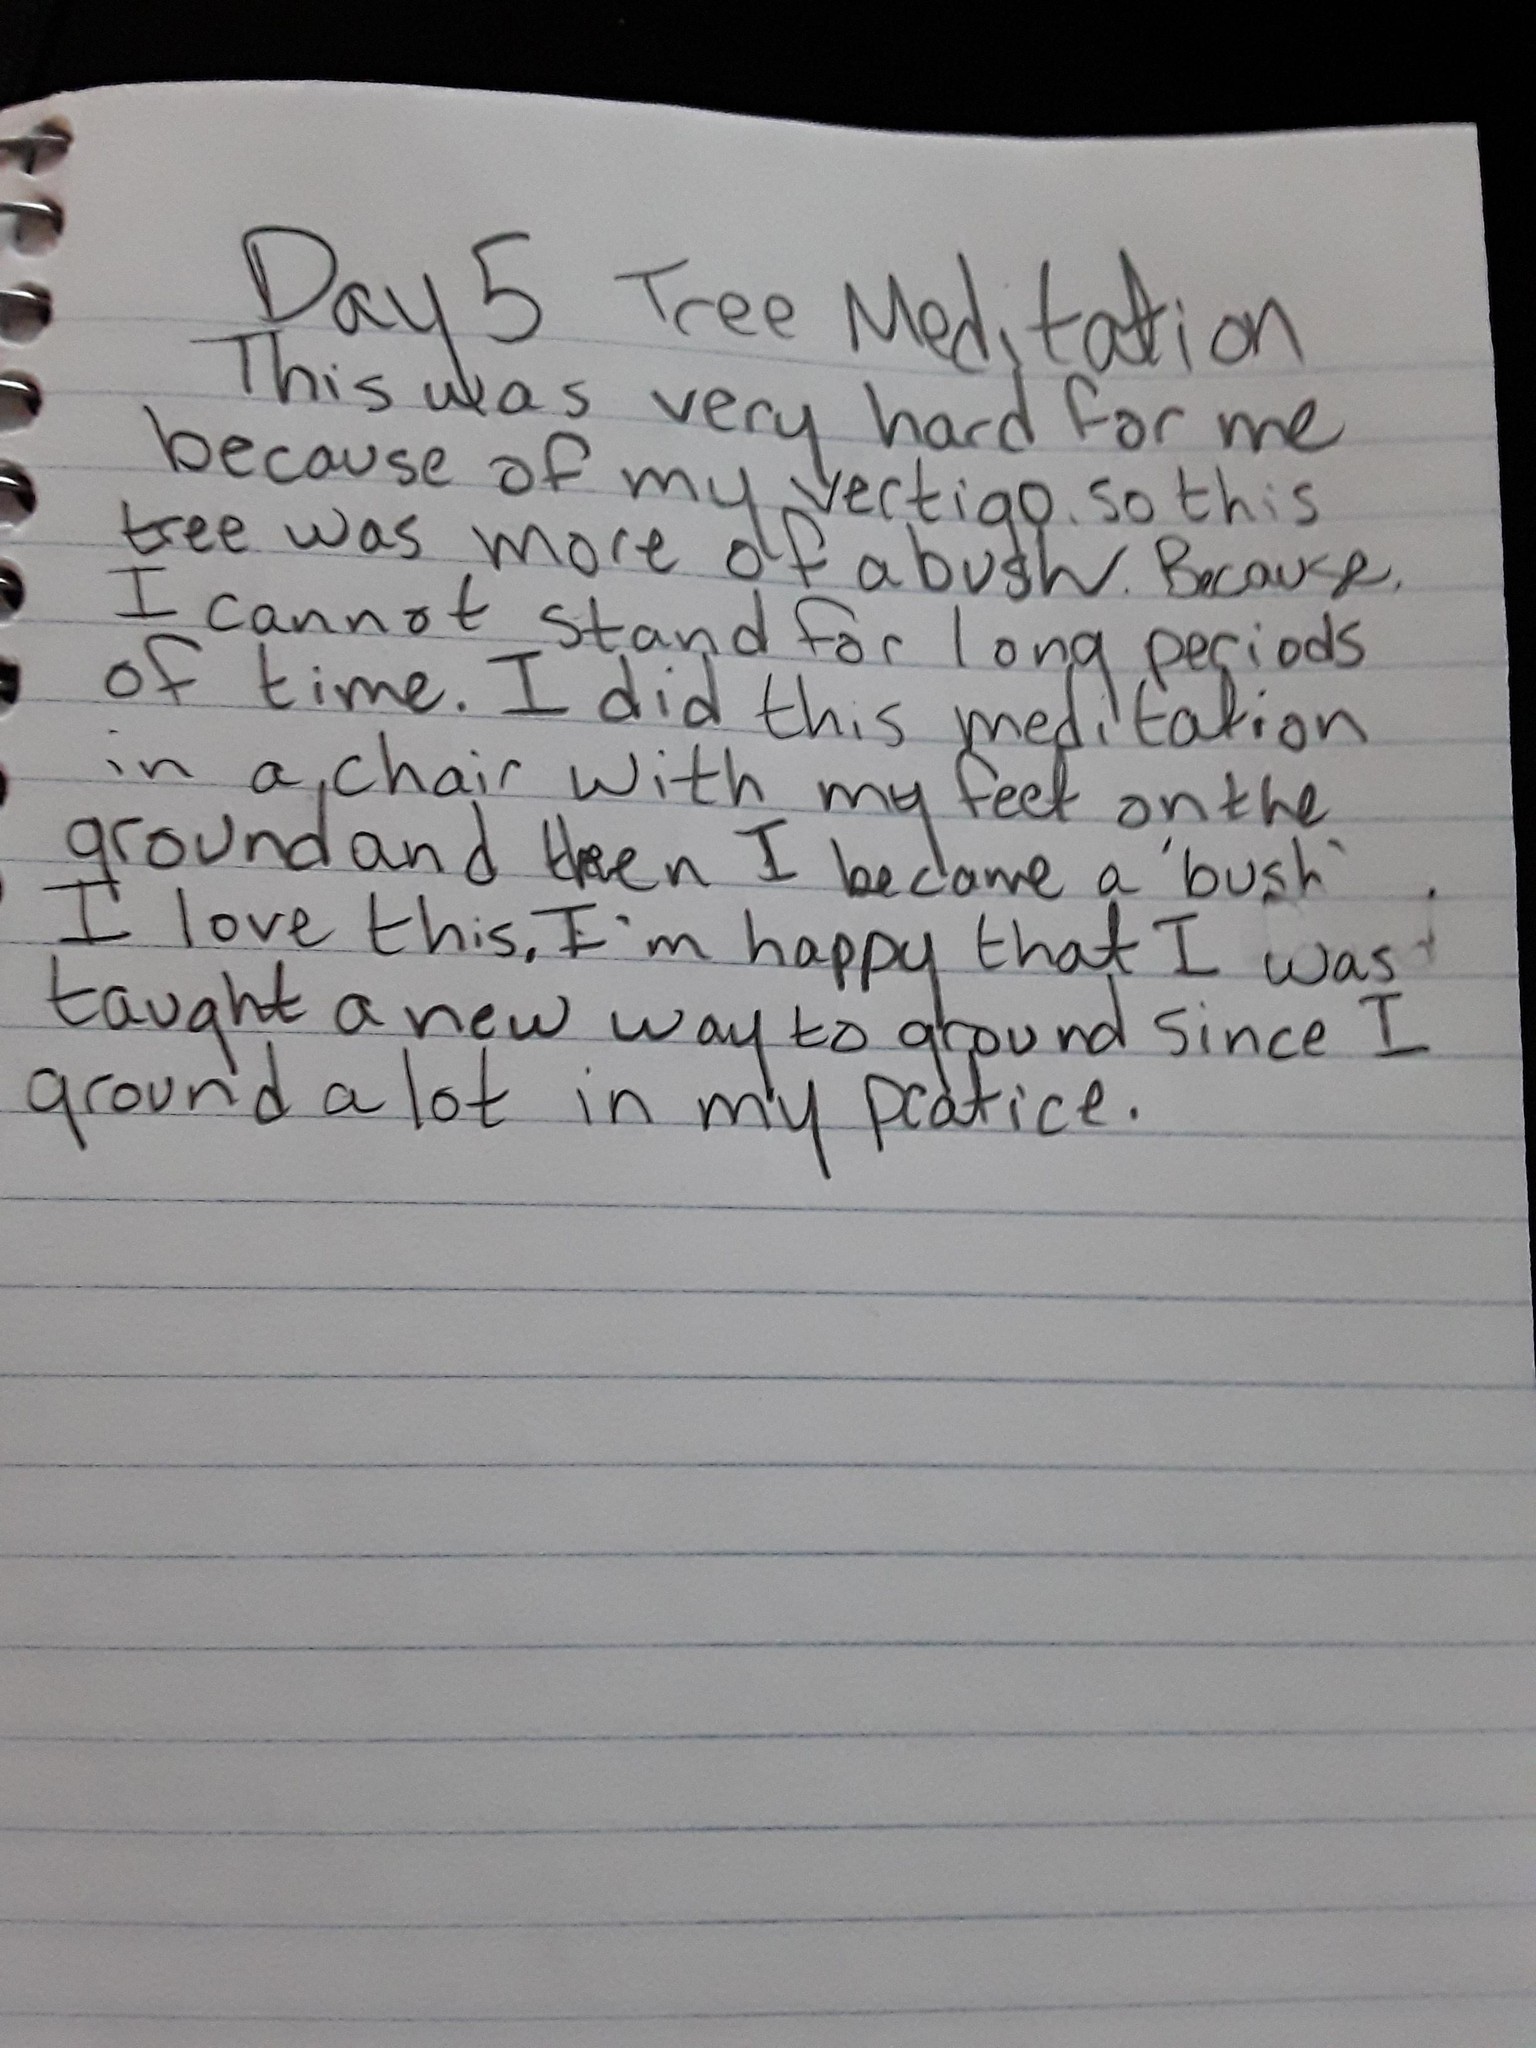 Day 5 Tree Meditation
This was very hard for me
because of my vertigo. so this
tree was more of a bush. Because.
I cannot stand for long periods
of time. I did this meditation
in a chair with my feet on the
ground and then I became a 'bush'.
I love this. I'm happy that I was
taught a new way to ground since I
ground a lot in my pratice.